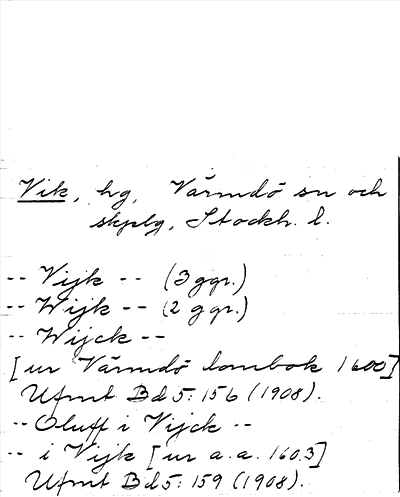 Vik, hg, Värmdö sn och
skplg, Stockh. l.
-- Vijk -- (3 ggr.)
-- Wijk -- (2 ggr.)
-- Wijck --
[ur Värmdö dombok 1600]
Ufmt Bd 5: 156 (1908).
-- Oluff i Vijck --
-- i Vijk [ur a.a. 1603]
Ufmt Bd 5: 159 (1908).